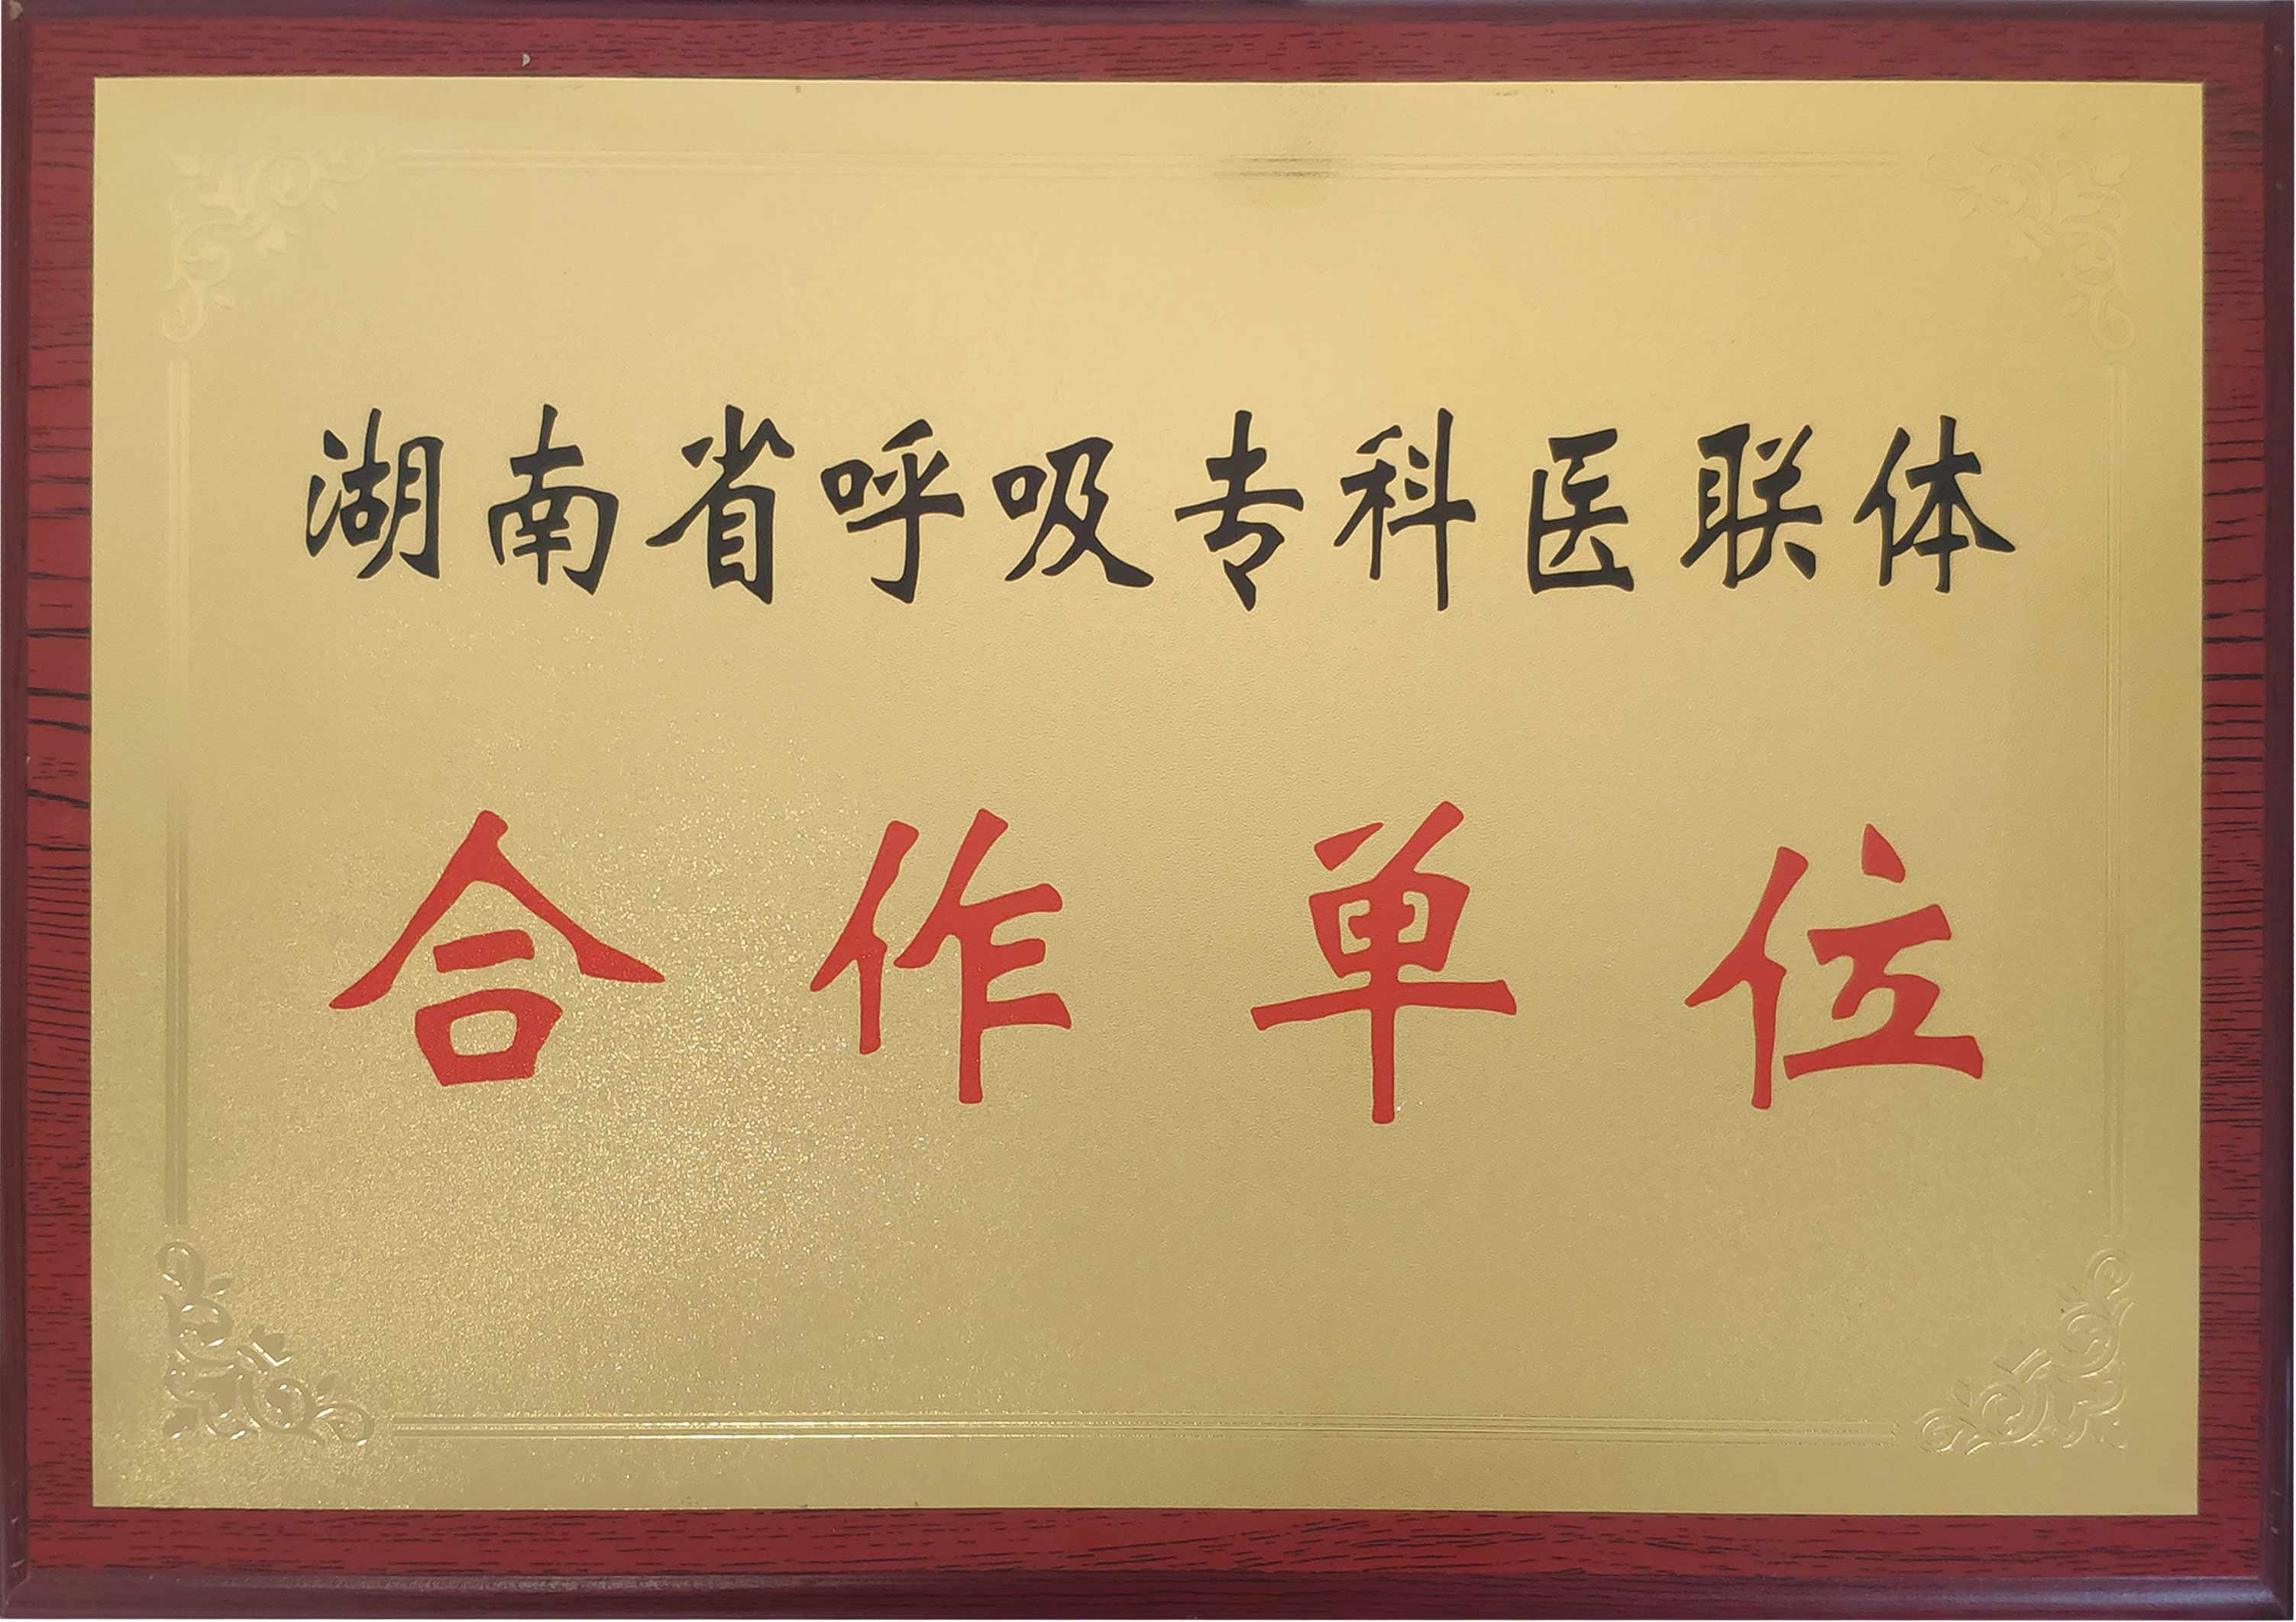 湖南省呼吸专科医联体
合作单位